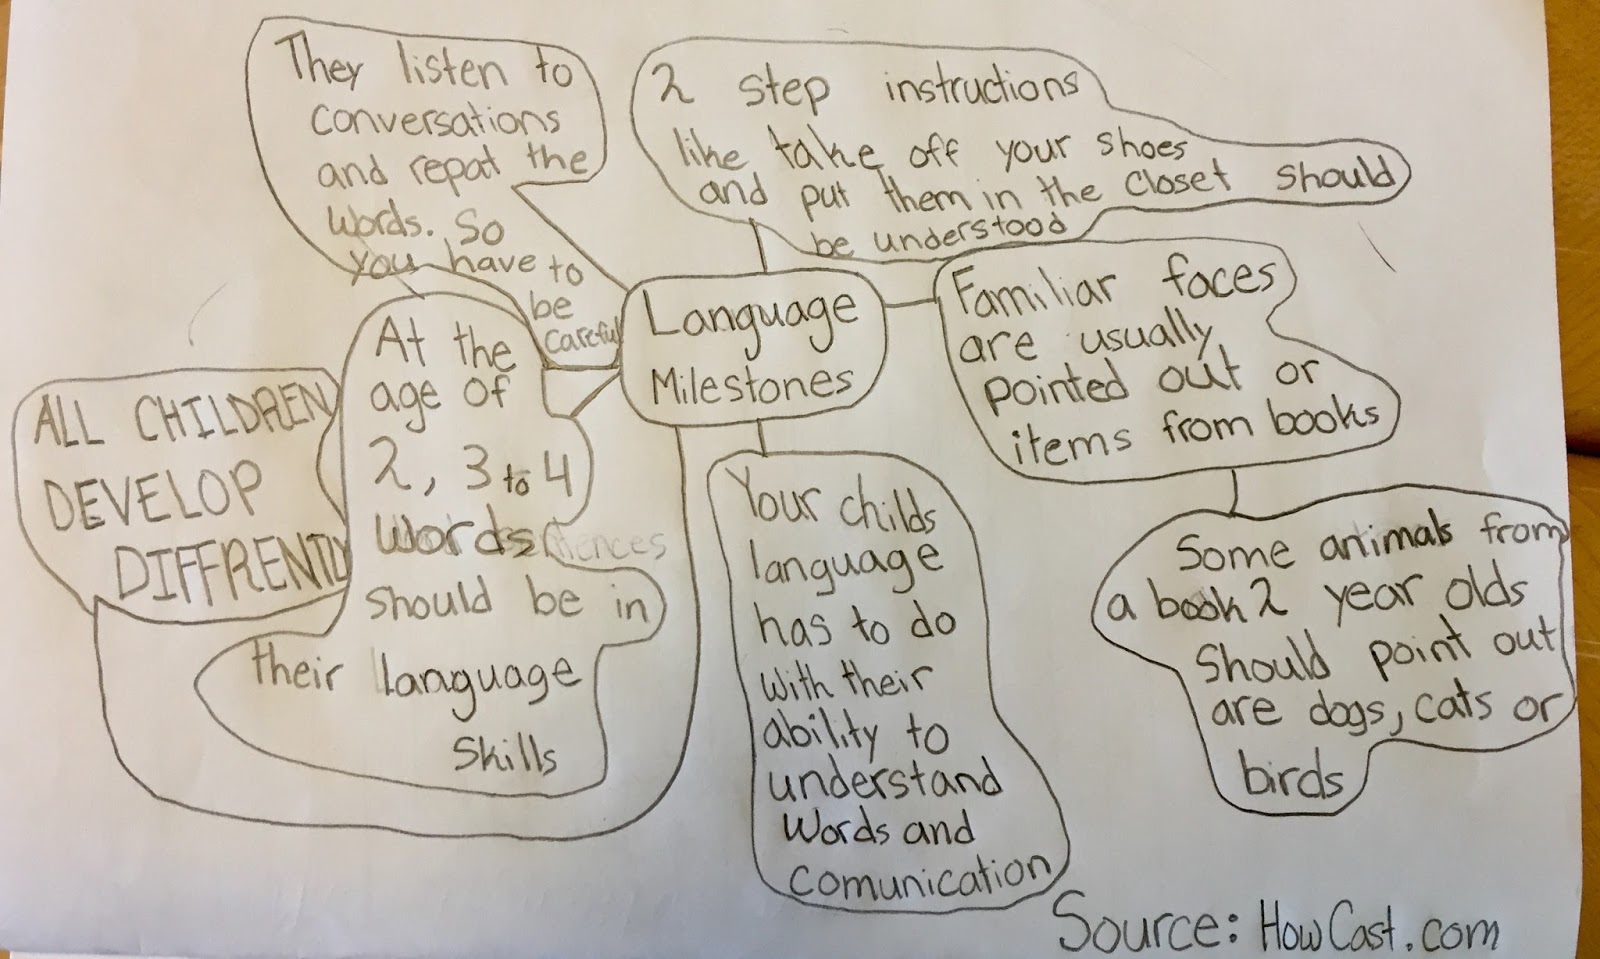 They listen to
conversations
and repat the
words. So
you have to
be
careful
2 step instructions
like take off your shoes
and put them in the closet should
be understood
Language
Milestones
Familiar faces
are usually
pointed out or
items from books
At the
age of
2, 3 to 4
words
should be in
their language
skills
ALL CHILDREN
DEVELOP
DIFFRENTLY
Your childs
language
has to do
with their
ability to
understand
words and
comunication
Some animals from
a book 2 year olds
should point out
are dogs, cats or
birds
Source: HowCast.com